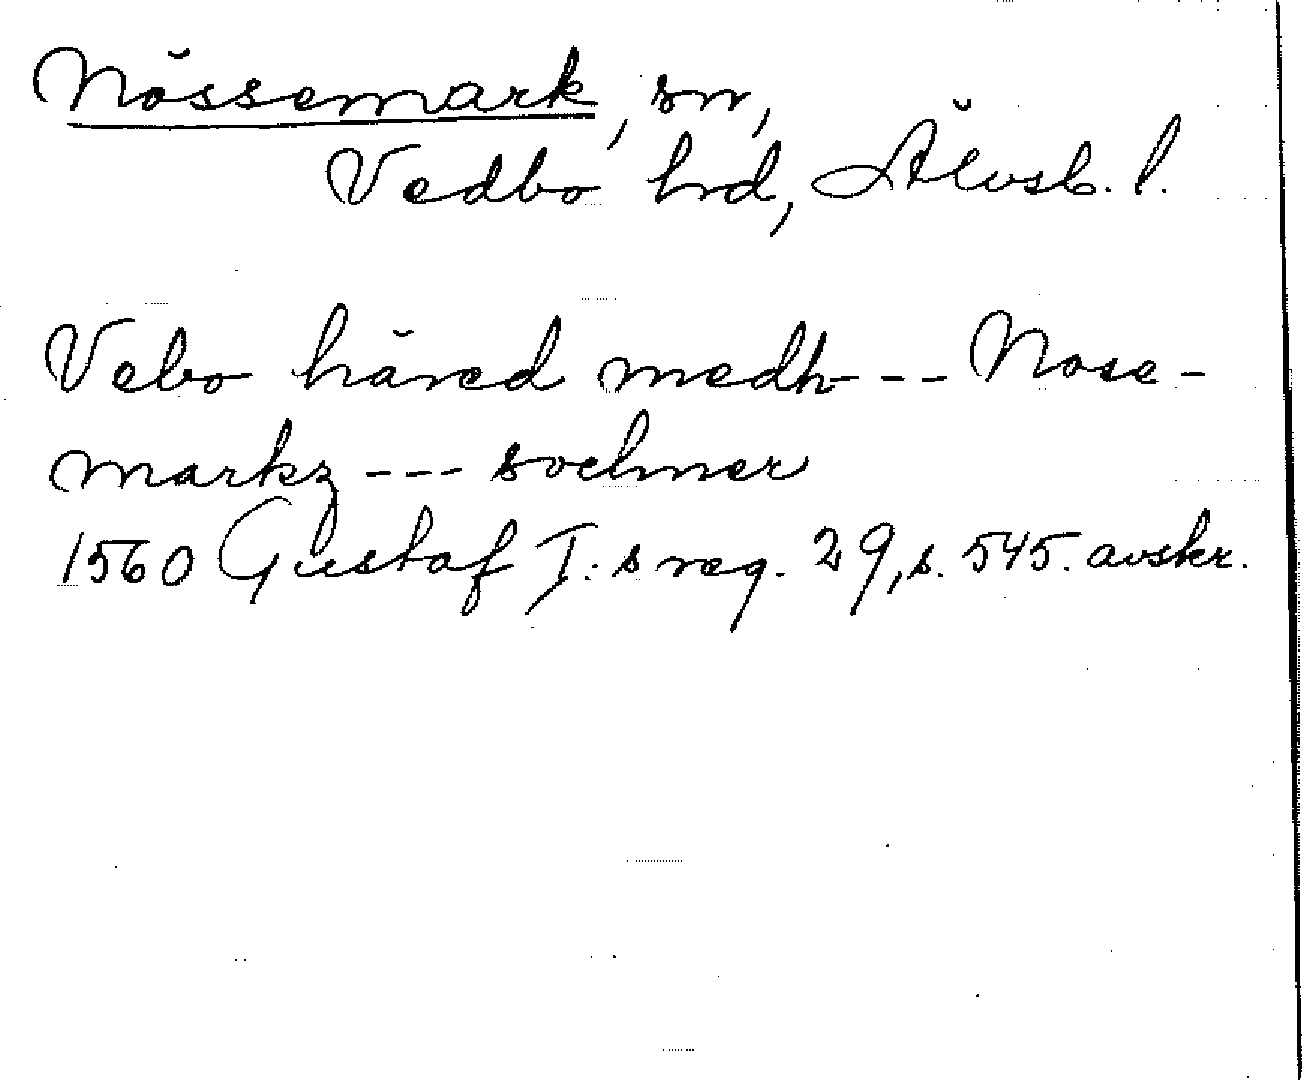 Nössemark, sn,
Vedbo hrd, Älvsb. l.
Vebo häred medh --- Nose-
markz --- sochner
1560 Gustaf I:s reg. 29, s. 545. avskr.